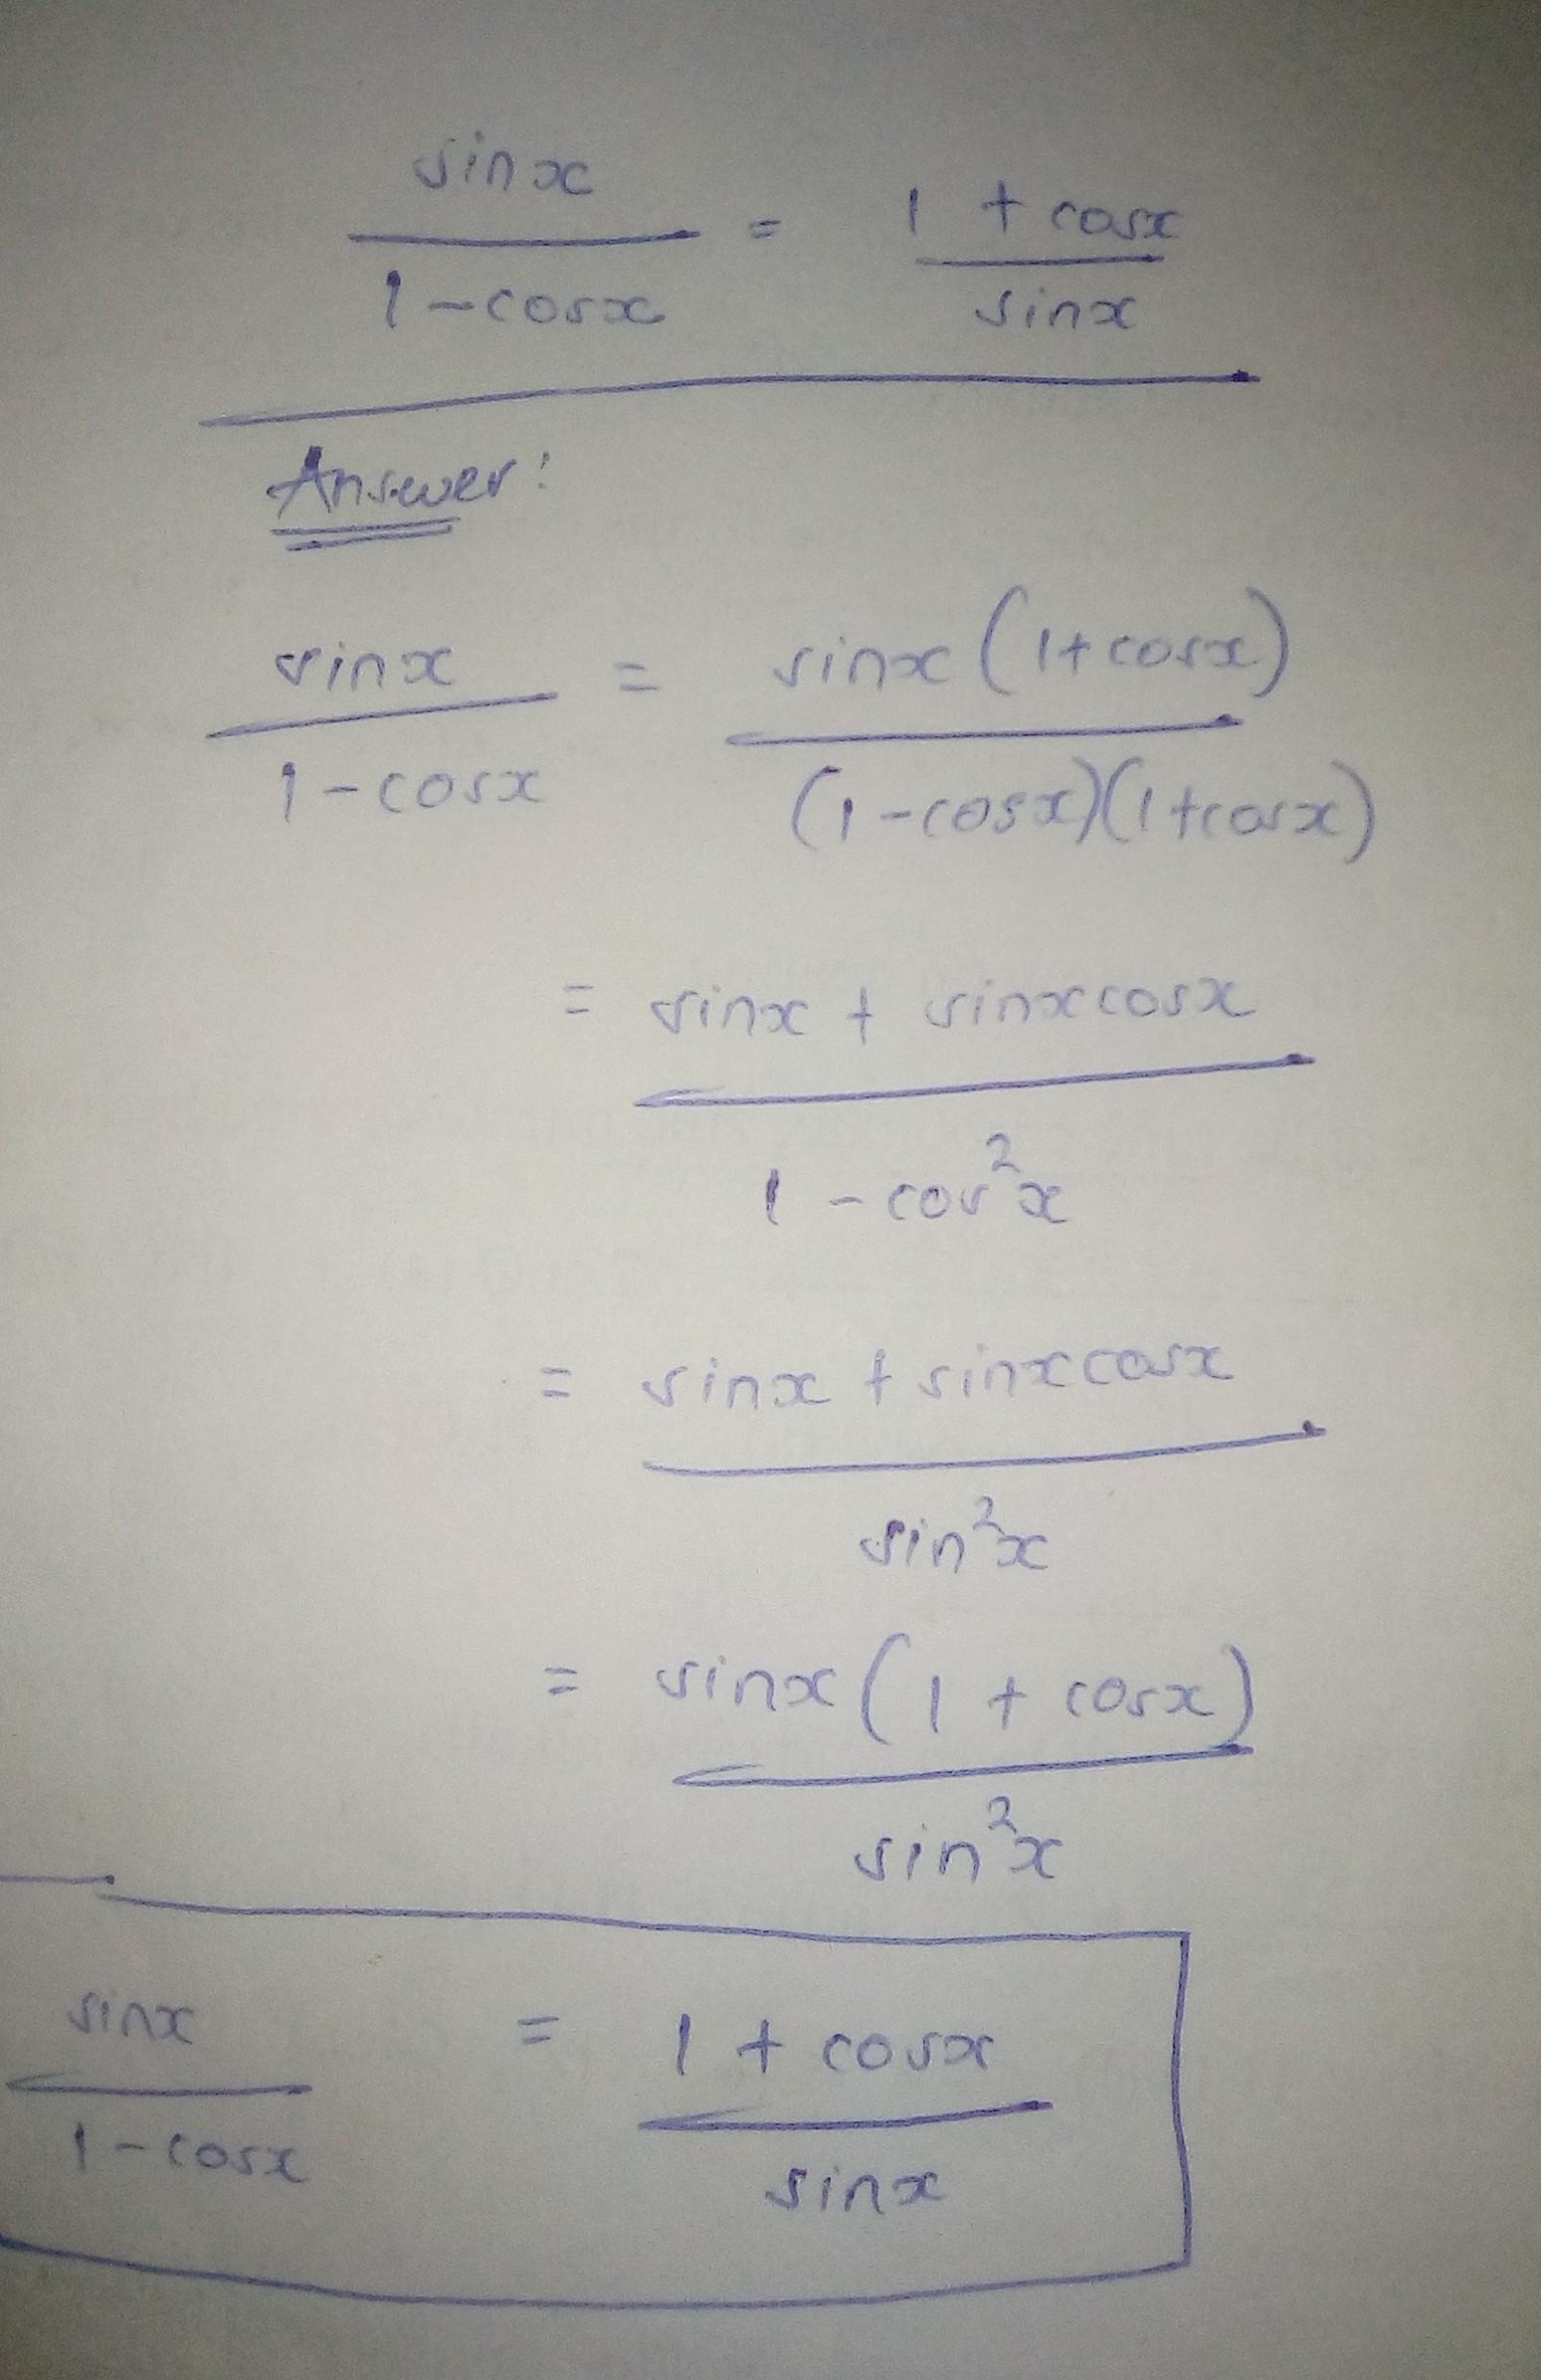 sinx/1-cosx = 1 + cosx/sinx
Answer:
sinx/1-cosx = sinx(1+cosx)/(1-cosx)(1+cosx)
= sinx + sinxcosx/1 - cos²x
= sinx + sinxcosx/sin²x
= sinx(1 + cosx)/sin²x
sinx/1-cosx = 1 + cosx/sinx